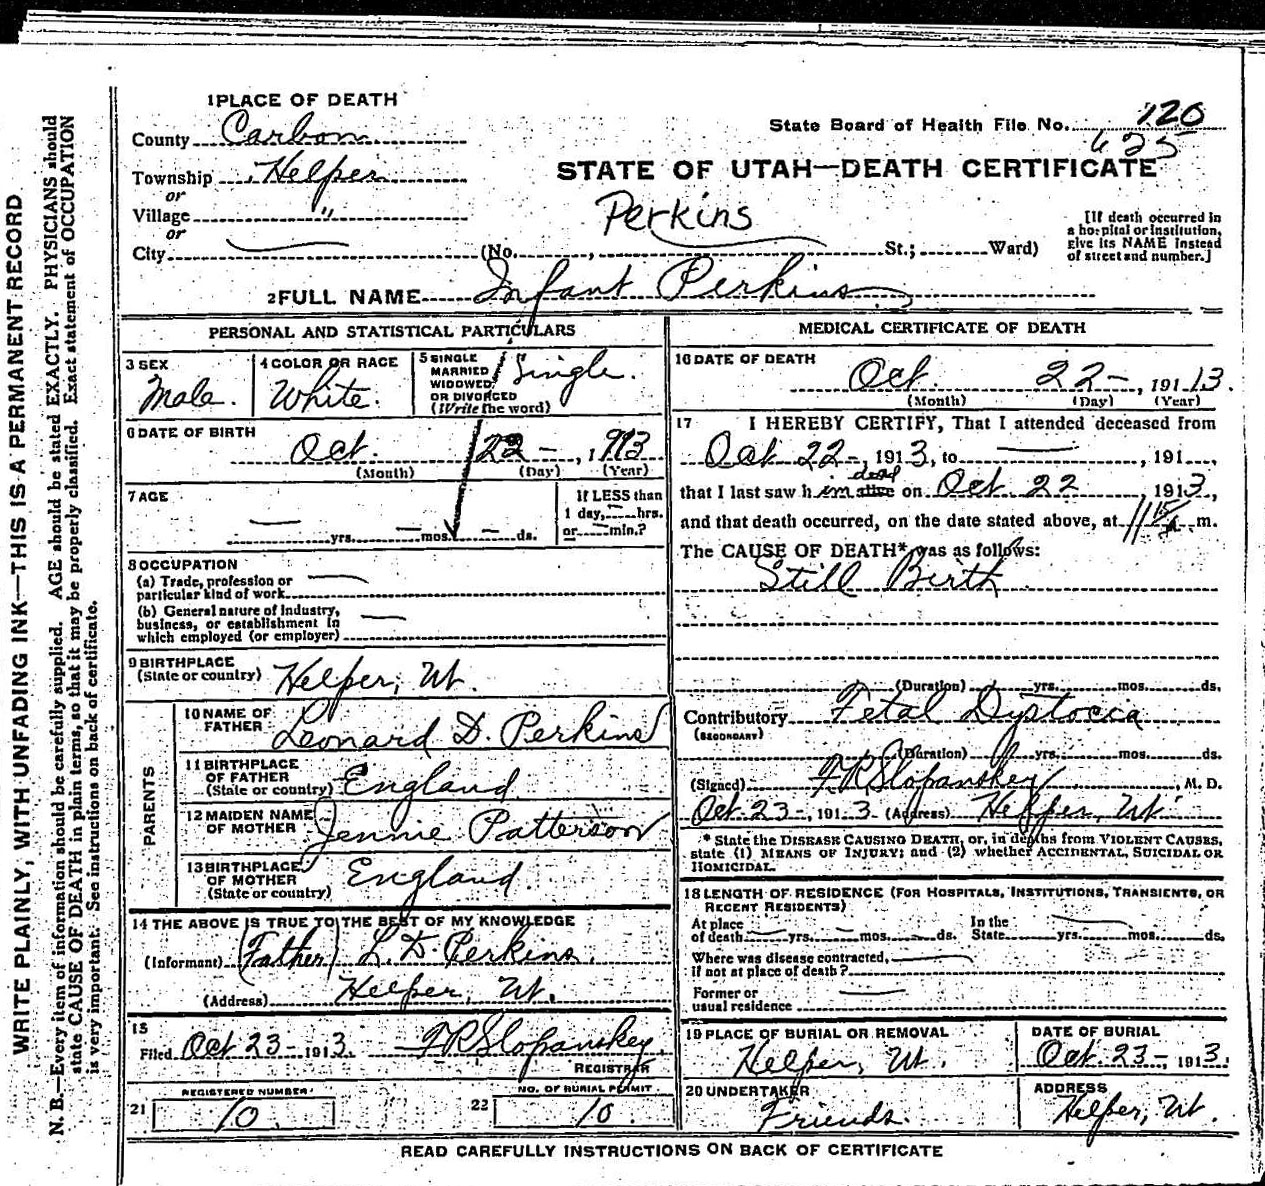 WRITE PLAINLY, WITH UNFADING INK—THIS IS A PERMANENT RECORD
N. B.—Every item of information should be carefully supplied. AGE should be stated EXACTLY. PHYSICIANS should
state CAUSE OF DEATH in plain terms, so that it may be properly classified. Exact statement of OCCUPATION
is very important. See instructions on back of certificate.
1 PLACE OF DEATH
County Carbon
Township Helper
or
Village "
or
City
State Board of Health File No. 120
625
STATE OF UTAH—DEATH CERTIFICATE
Perkins
(No. , St.; Ward)
[If death occurred in
a hospital or institution,
give its NAME instead
of street and number.]
2 FULL NAME Infant Perkins
PERSONAL AND STATISTICAL PARTICULARS
3 SEX
Male.
4 COLOR OR RACE
White.
5 SINGLE
MARRIED
WIDOWED
OR DIVORCED
(Write the word)
Single.
6 DATE OF BIRTH
Oct. 22 — , 1913
(Month) (Day) (Year)
7 AGE
— yrs. — mos. — ds.
If LESS than
1 day, — hrs.
or — min.?
8 OCCUPATION
(a) Trade, profession or
particular kind of work —
(b) General nature of industry,
business, or establishment in
which employed (or employer) —
9 BIRTHPLACE
(State or country) Helper, Ut.
PARENTS
10 NAME OF
FATHER Leonard D. Perkins
11 BIRTHPLACE
OF FATHER
(State or country) England
12 MAIDEN NAME
OF MOTHER Jennie Patterson
13 BIRTHPLACE
OF MOTHER
(State or country) England.
14 THE ABOVE IS TRUE TO THE BEST OF MY KNOWLEDGE
(Informant) (Father) L. D. Perkins.
(Address) Helper, Ut.
15
Filed Oct 23 - 1913. F R Slopanskey.
REGISTRAR
REGISTERED NUMBER
21 10
NO. OF BURIAL PERMIT
22 10
MEDICAL CERTIFICATE OF DEATH
16 DATE OF DEATH
Oct. 22 — , 191 13.
(Month) (Day) (Year)
17 I HEREBY CERTIFY, That I attended deceased from
Oct 22 - , 1913, to — , 191 ,
dead
that I last saw h im alive on Oct 22 , 1913,
and that death occurred, on the date stated above, at 11 15 A m.
The CAUSE OF DEATH* was as follows:
Still Birth
(Duration) yrs. mos. ds.
Contributory Fetal Dystocia
(SECONDARY)
(Duration) yrs. mos. ds.
(Signed) F R Slopanskey , M. D.
Oct. 23 - , 1913 (Address) Helper, Ut.
* State the DISEASE CAUSING DEATH, or, in deaths from VIOLENT CAUSES,
state (1) MEANS OF INJURY; and (2) whether ACCIDENTAL, SUICIDAL OR
HOMICIDAL.
18 LENGTH OF RESIDENCE (FOR HOSPITALS, INSTITUTIONS, TRANSIENTS, OR
RECENT RESIDENTS)
At place
of death — yrs. — mos. — ds.
In the
State — yrs. mos. ds.
Where was disease contracted,
if not at place of death? —
Former or
usual residence —
19 PLACE OF BURIAL OR REMOVAL
Helper, Ut.
DATE OF BURIAL
Oct. 23 — , 1913.
20 UNDERTAKER
Friends.
ADDRESS
Helper, Ut.
READ CAREFULLY INSTRUCTIONS ON BACK OF CERTIFICATE